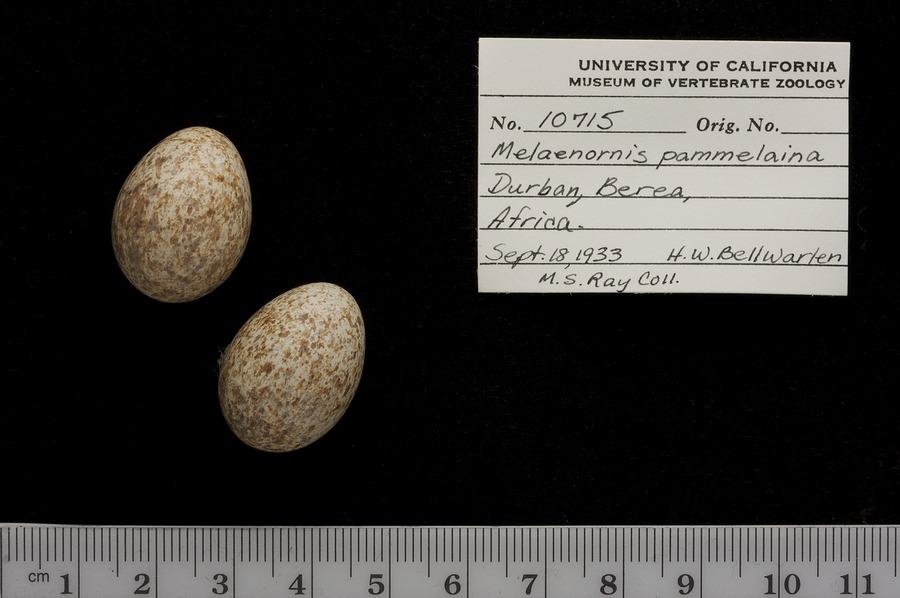 UNIVERSITY OF CALIFORNIA
MUSEUM OF VERTEBRATE ZOOLOGY
No. 10715 Orig. No.
Melaenornis pammelaina
Durban, Berea,
Africa.
Sept. 18, 1933 H.W. Bell Marlen
M.S. Ray Coll.
cm 1 2 3 4 5 6 7 8 9 10 11